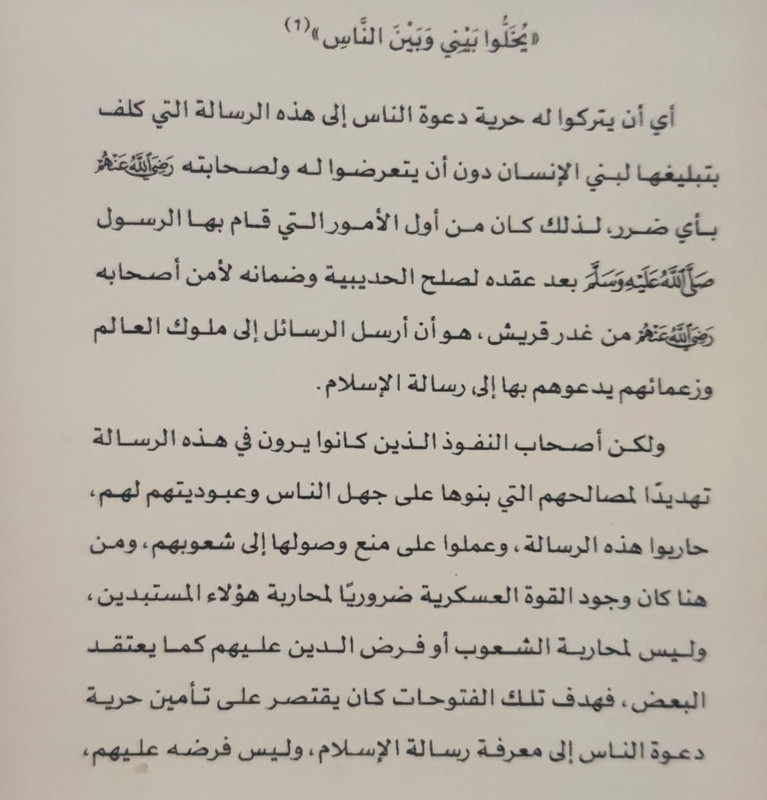 «يُخَلُّوا بَيْنِي وَبَيْنَ النَّاسِ»(1)
أي أن يتركوا له حرية دعوة الناس إلى هذه الرسالة التي كلف
بتبليغها لبني الإنسان دون أن يتعرضوا له ولصحابته رَضِيَ اللَّهُ عَنْهُمْ
بأي ضرر، لذلك كان من أول الأمور التي قام بها الرسول
صَلَّى اللَّهُ عَلَيْهِ وَسَلَّمَ بعد عقده لصلح الحديبية وضمانه لأمن أصحابه
رَضِيَ اللَّهُ عَنْهُمْ من غدر قريش، هو أن أرسل الرسائل إلى ملوك العالم
وزعمائهم يدعوهم بها إلى رسالة الإسلام.
ولكن أصحاب النفوذ الذين كانوا يرون في هذه الرسالة
تهديدًا لمصالحهم التي بنوها على جهل الناس وعبوديتهم لهم،
حاربوا هذه الرسالة، وعملوا على منع وصولها إلى شعوبهم، ومن
هنا كان وجود القوة العسكرية ضروريًا لمحاربة هؤلاء المستبدين،
وليس لمحاربة الشعوب أو فرض الدين عليهم كما يعتقد
البعض، فهدف تلك الفتوحات كان يقتصر على تأمين حرية
دعوة الناس إلى معرفة رسالة الإسلام، وليس فرضه عليهم،